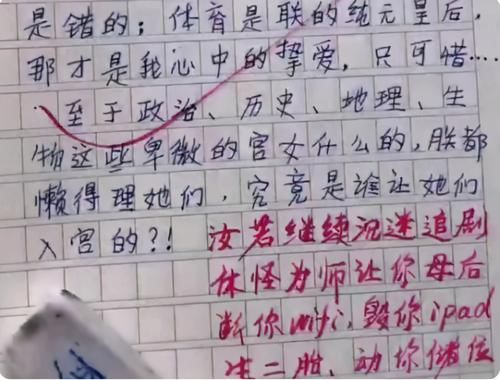 是错的；体育是联的纯元皇后，
那才是我心中的挚爱，只可惜…
至于政治、历史、地理、生
物这些卑微的宫女什么的，朕都
懒得理她们，究竟是谁让她们
入宫的？！汝若继续沉迷追剧
休怪为师让你母后
断你wifi，毁你ipad
生二胎、动你储位